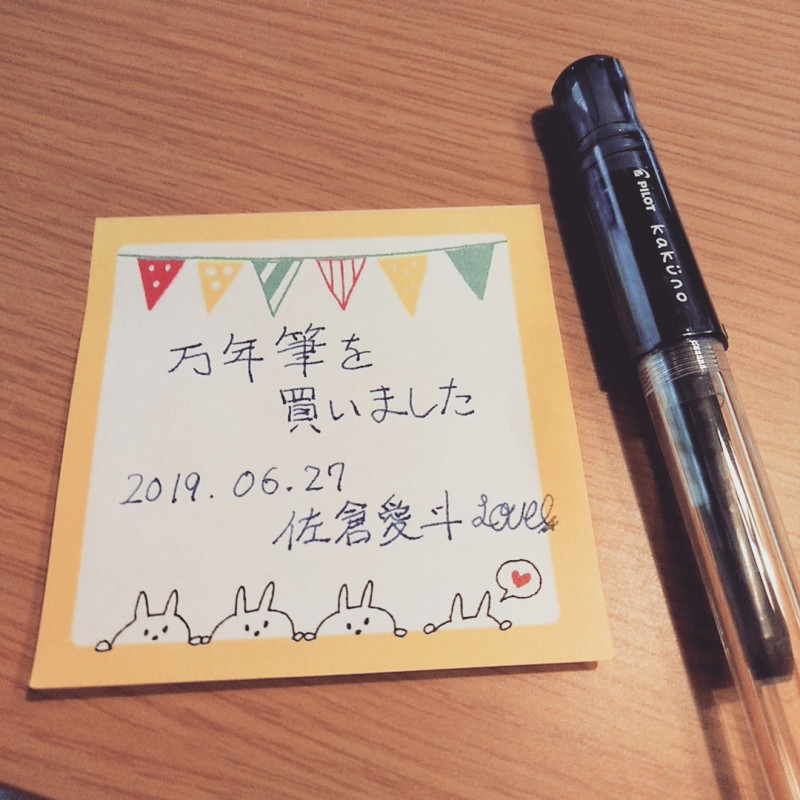 万年筆を
買いました
2019.06.27
佐倉愛斗 Love
PILOT kaküno